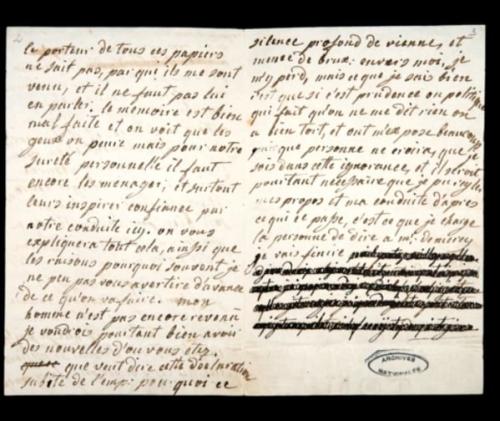 le porteur de tous ces papiers
ne sait pas, par qui ils me sont
venu, et il ne faut pas lui
en parler. le memoire est bien
mal faite et on voit que les
gens on peure mais pour notre
sureté personnelle il faut
encore les menager, et surtout
leurs inspirer confiance par
notre conduite icy. on vous
expliquera tout cela, ainsi que
les raisons pourquoi souvent je
ne peu pas vous avertire d'avance
de ce qu'on va faire. mon
homme n'est pas encore revenu
je voudrois pourtant bien avoir
des nouvelles d'ou vous étez.
que veut dire cette declaration
subite de l'emp: pourquoi ce
3
silence profond de vienne, et
meme de brux: envers moi, je
m'y perd, mais ce que je sais bien
c'est que si c'est prudence ou politique
qui fait qu'on ne me dit rien on
a bien tort, et on m'expose beaucoup
que personne ne croira, que je
sois dans cette ignorance, et il seroit
pourtant nécessaire que je puis
mes propos et ma conduite d'apres
ce qui ce passe, c'est ce que je charge
la personne de dire a mr:
je vais finire
ARCHIVES
NATIONALES